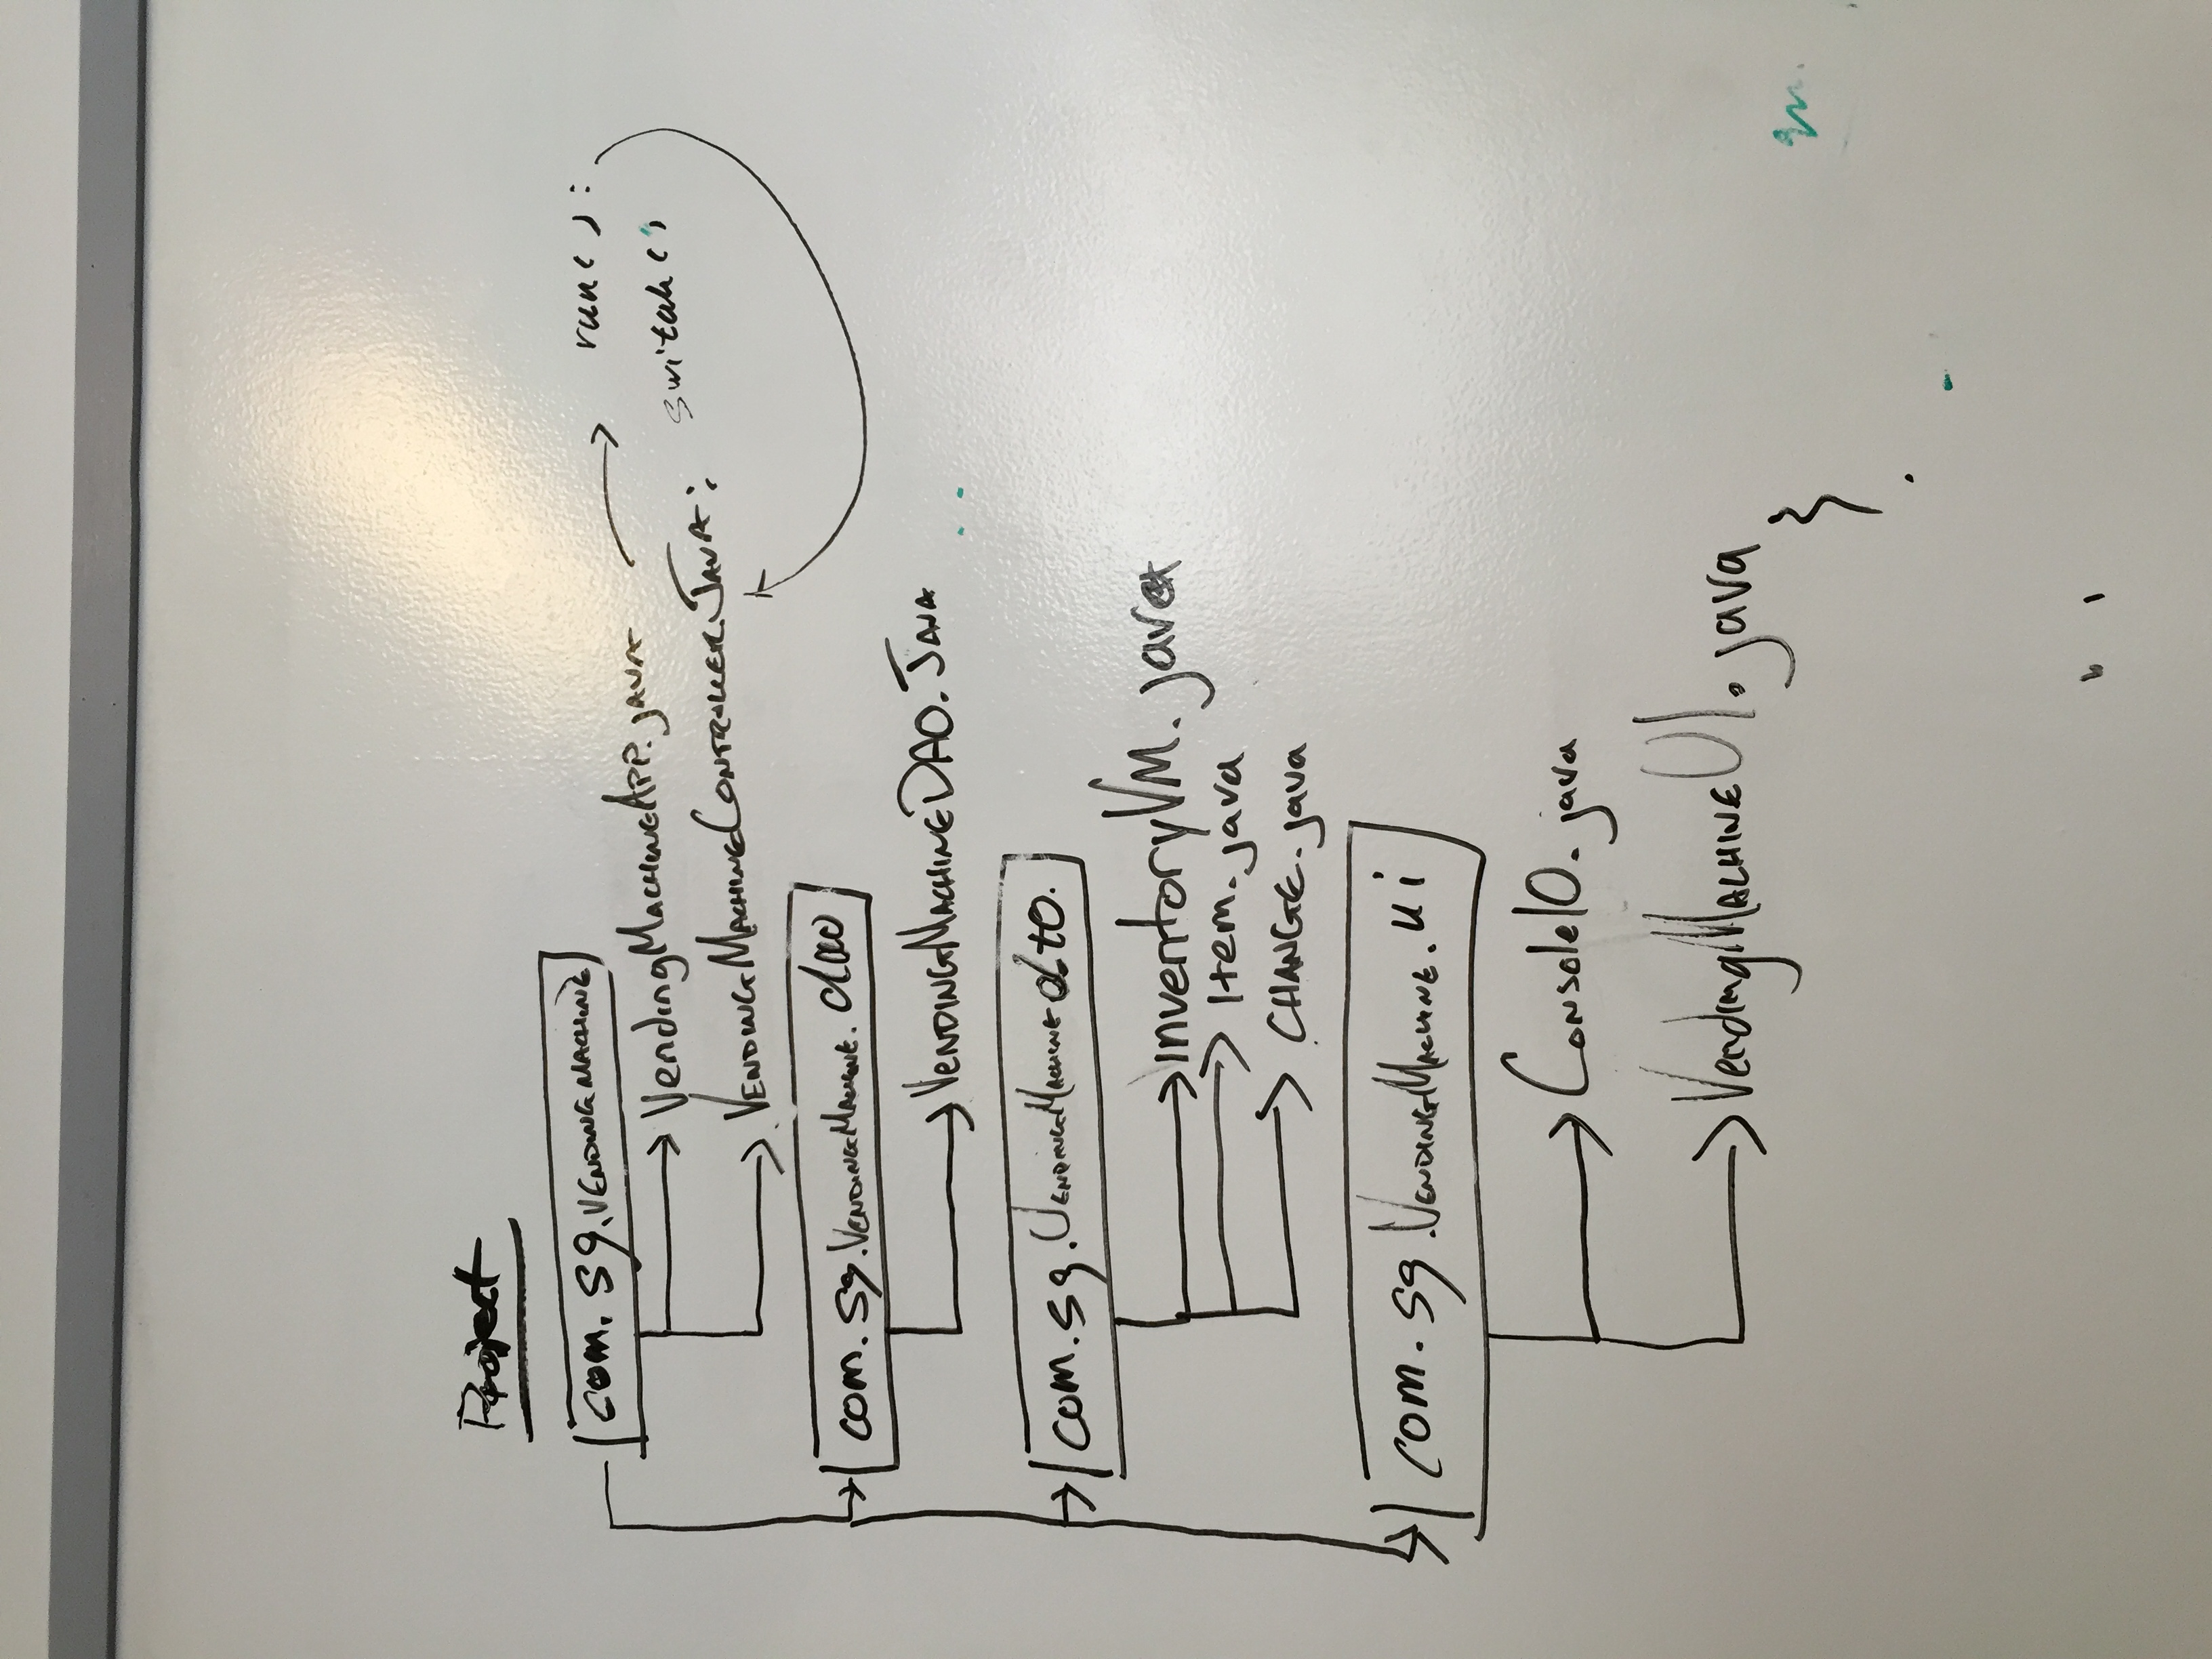 Project
com.sg.VENDINGMACHINE
VendingMACHINEAPP.java
run():
VENDINGMACHINECONTROLLER.JAVA:
switch()
com.sg.VENDINGMACHINE.dao
VENDINGMACHINEDAO.JAVA
com.sg.VENDINGMACHINE.dto.
inventoryVM.java
Item.java
CHANGE.java
com.sg.VENDINGMACHINE.ui
ConsoleIO.java
VendingMACHINEUI.java
}